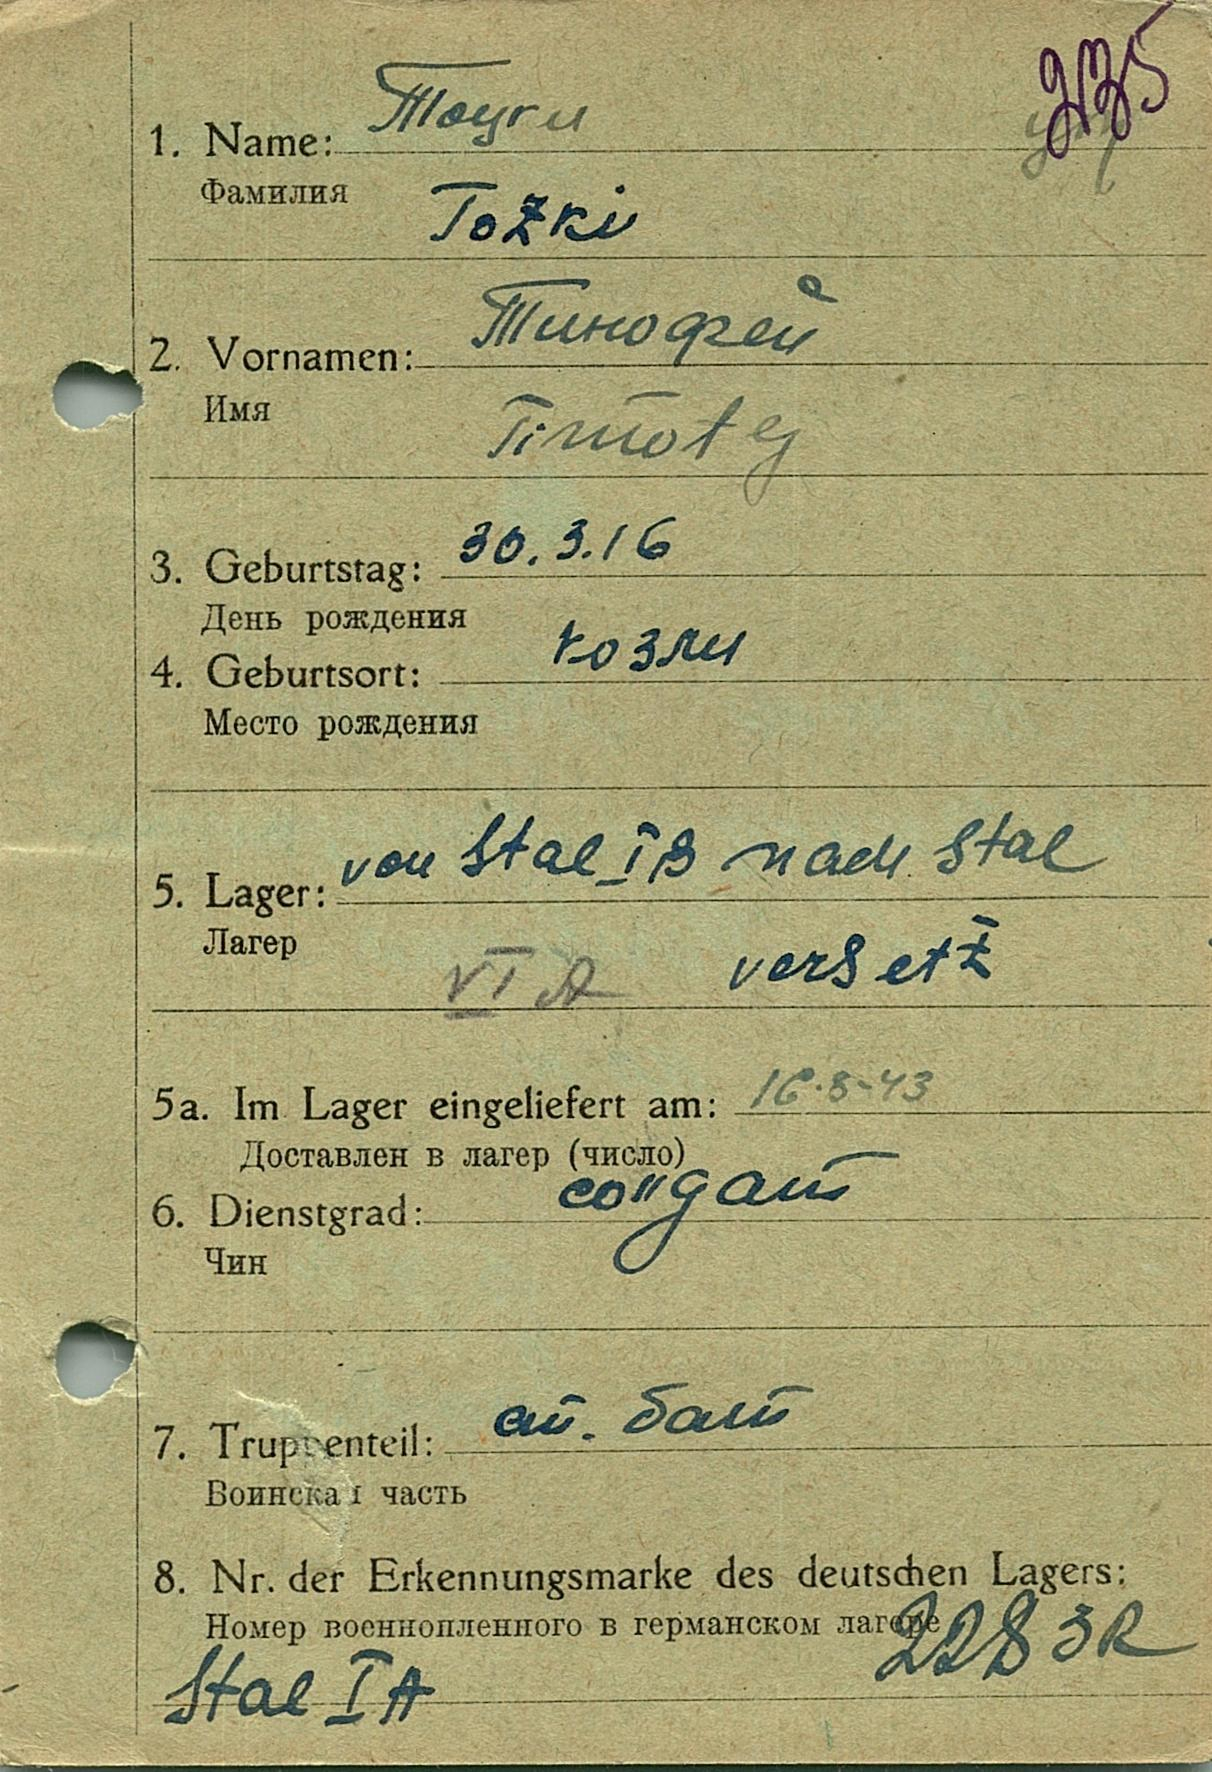 235
1. Name: Тоцки
Фамилия
Tozki
2. Vornamen: Тимофей
Имя
Timofej
3. Geburtstag: 30.3.16
День рождения
4. Geburtsort: Козли
Место рождения
von Stal IB nach Stal
5. Lager:
Лагер
VI A versetzt
5a. Im Lager eingeliefert am: 16-8-43
Доставлен в лагер (число)
6. Dienstgrad: солдат
Чин
7. Truppenteil: ст. бат
Воинская часть
8. Nr. der Erkennungsmarke des deutschen Lagers:
Номер военнопленного в германском лагере
Stal IA